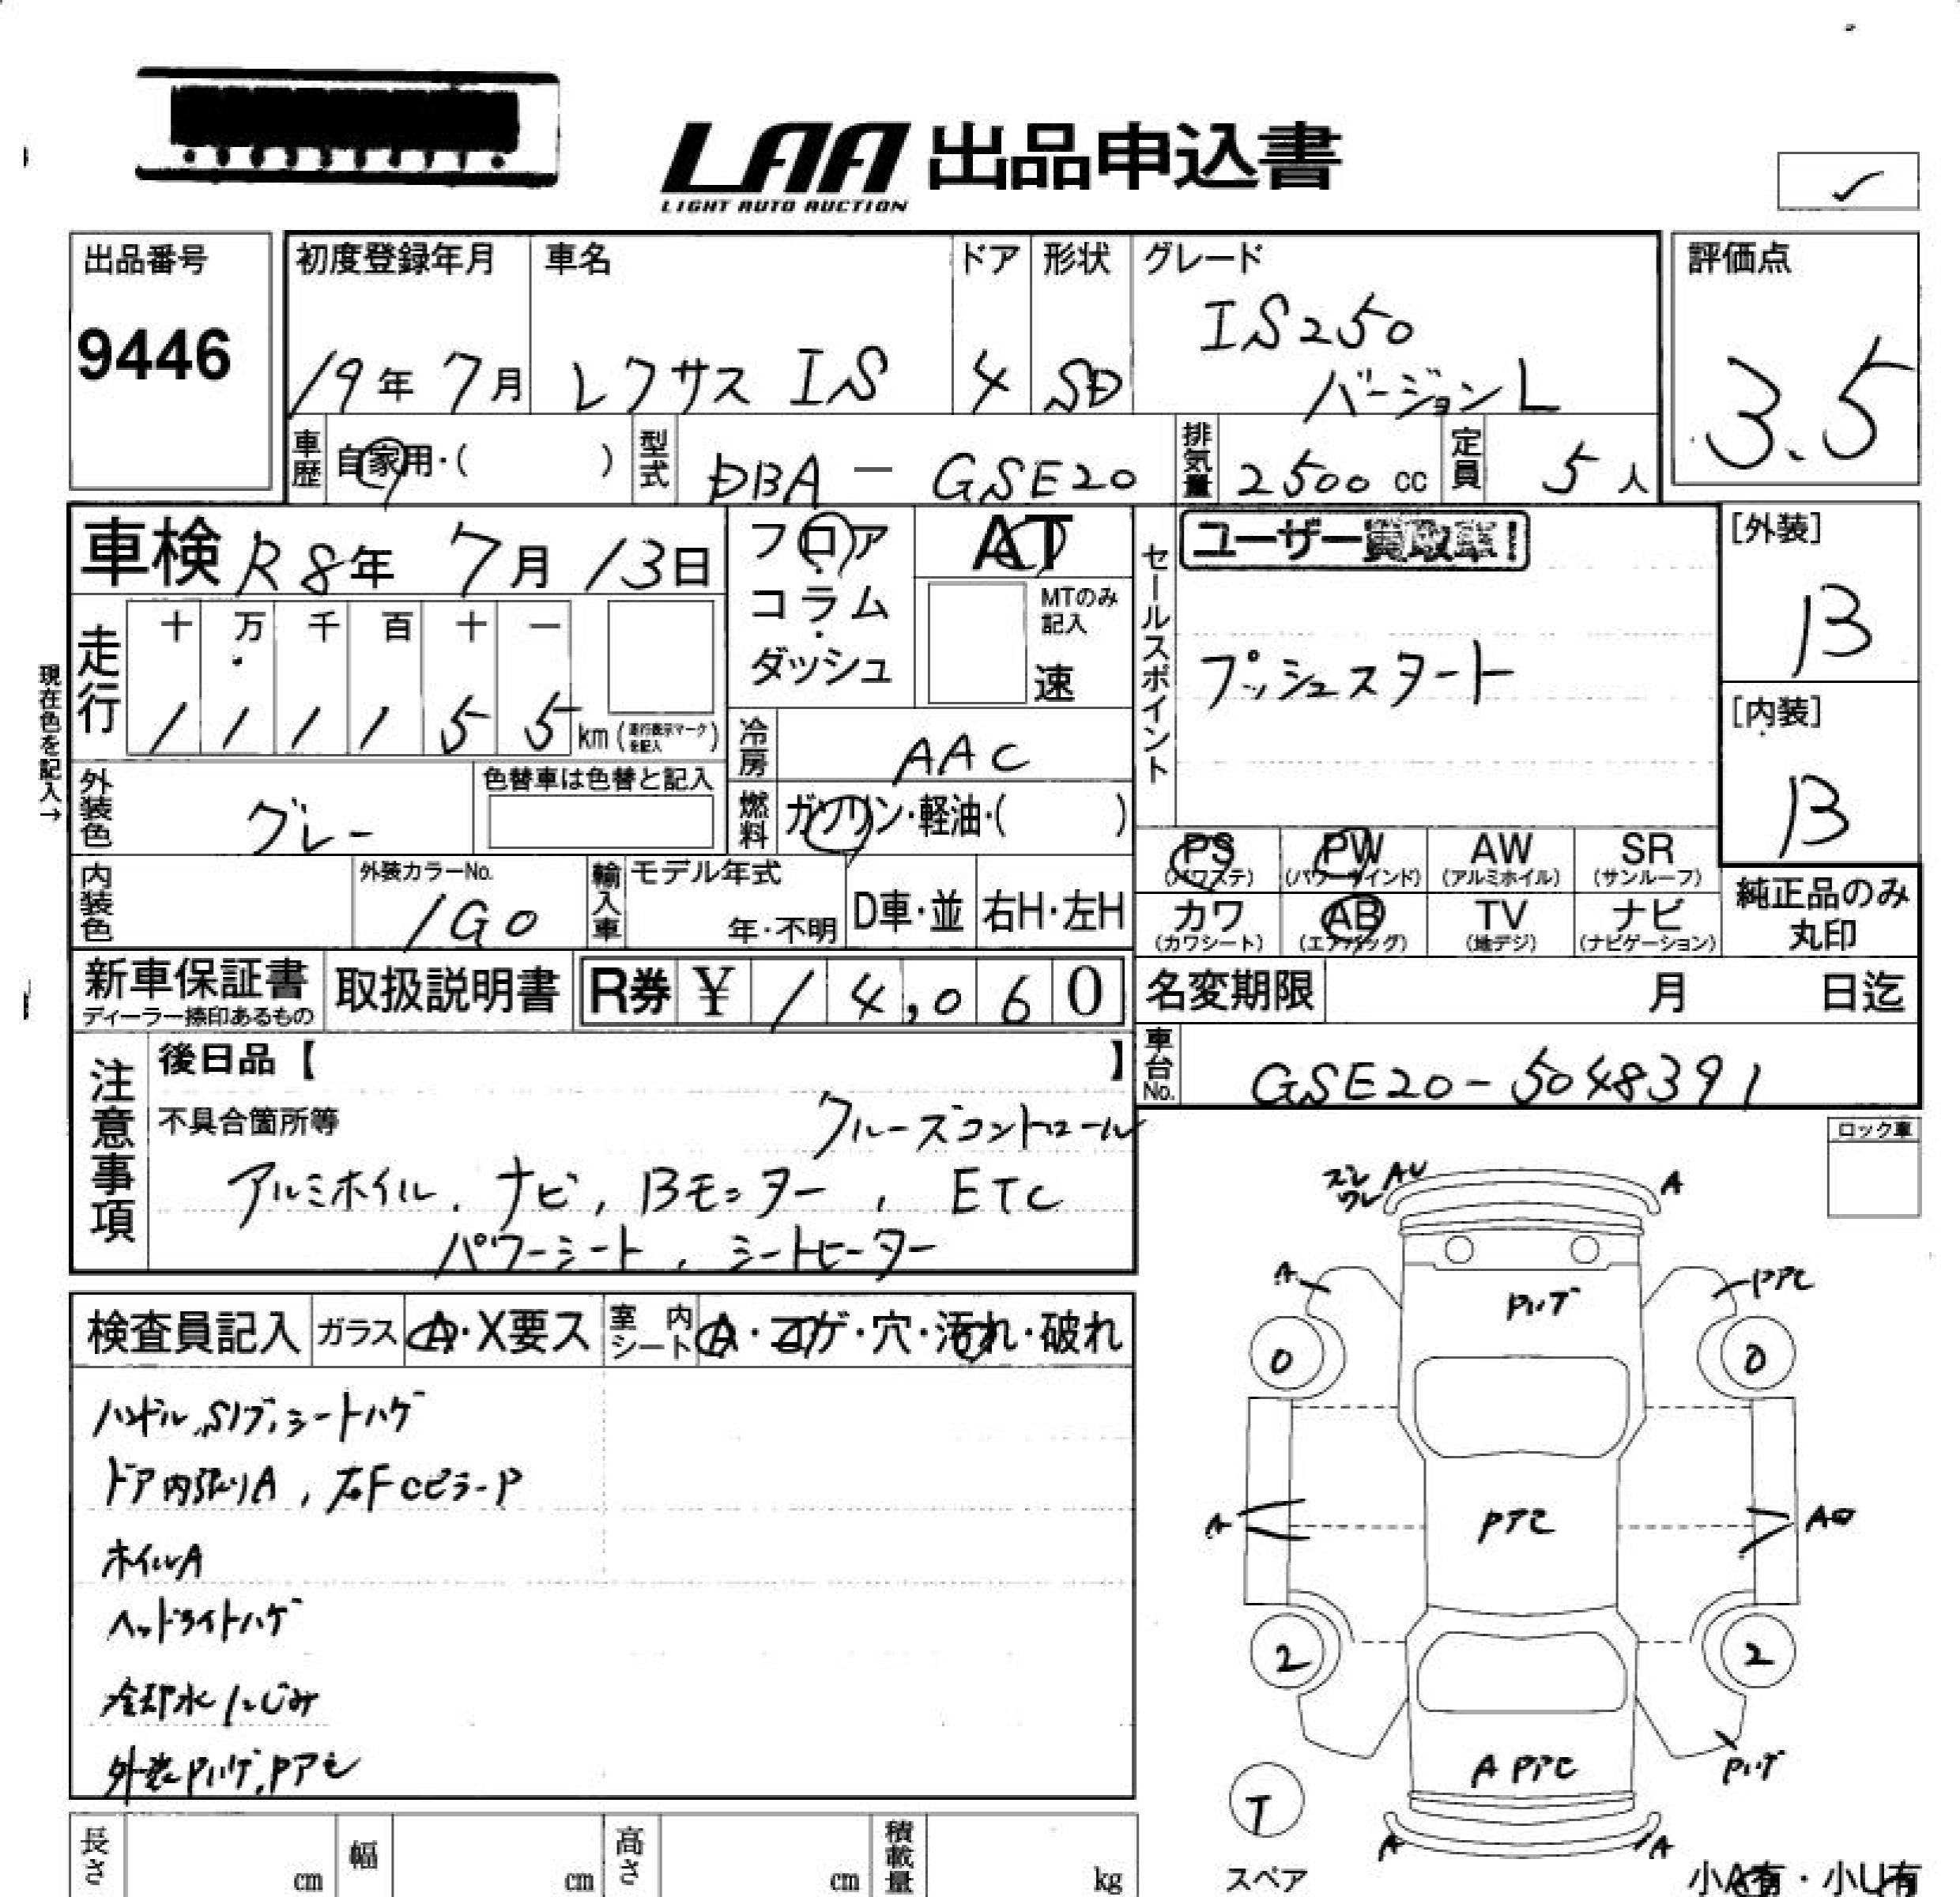 LAA 出品申込書
LIGHT AUTO AUCTION
出品番号
9446
初度登録年月
19年 7月
車名
レクサス IS
ドア
4
形状
SD
グレード
IS250
バージョンL
評価点
3.5
車歴 自家用・( )
型式 DBA - GSE20
排気量 2500 cc
定員 5人
車検 R8年 7月 13日
フロア・コラム・ダッシュ
AT
MTのみ記入
速
セールスポイント
ユーザー買取車!
プッシュスタート
[外装]
B
[内装]
B
現在色を記入→
走行
十 万 千 百 十 一
1 1 1 1 5 5 km (走行表示マークを記入)
冷房 AAC
外装色 グレー
色替車は色替と記入
燃料 ガソリン・軽油・( )
PS (パワステ) PW (パワーウインド) AW (アルミホイル) SR (サンルーフ)
カワ (カワシート) AB (エアバッグ) TV (地デジ) ナビ (ナビゲーション)
純正品のみ丸印
内装色
外装カラーNo.
1G0
輸入車 モデル年式 年・不明 D車・並 右H・左H
新車保証書
ディーラー捺印あるもの
取扱説明書
R券 ¥ 14,060
名変期限 月 日迄
車台No. GSE20-5048391
注意事項
後日品【 】
不具合箇所等
クルーズコントロール
アルミホイル、ナビ、Bモニター、ETC
パワーシート、シートヒーター
検査員記入 ガラス A・X要ス 室内シート A・コゲ・穴・汚れ・破れ
ハンドル、Sノブ、シートハゲ
ドア内張りA、右FCピラーP
ホイルA
ヘッドライトハゲ
冷却水にじみ
外装Pハゲ、Pアセ
ロック車
ズレ AU
ワレ
A
A
Pアセ
Pハゲ
0
0
Pアセ
A
2
2
A Pアセ
Pハゲ
T
スペア
A
A
小A有・小U有
長さ cm 幅 cm 高さ cm 積載量 kg